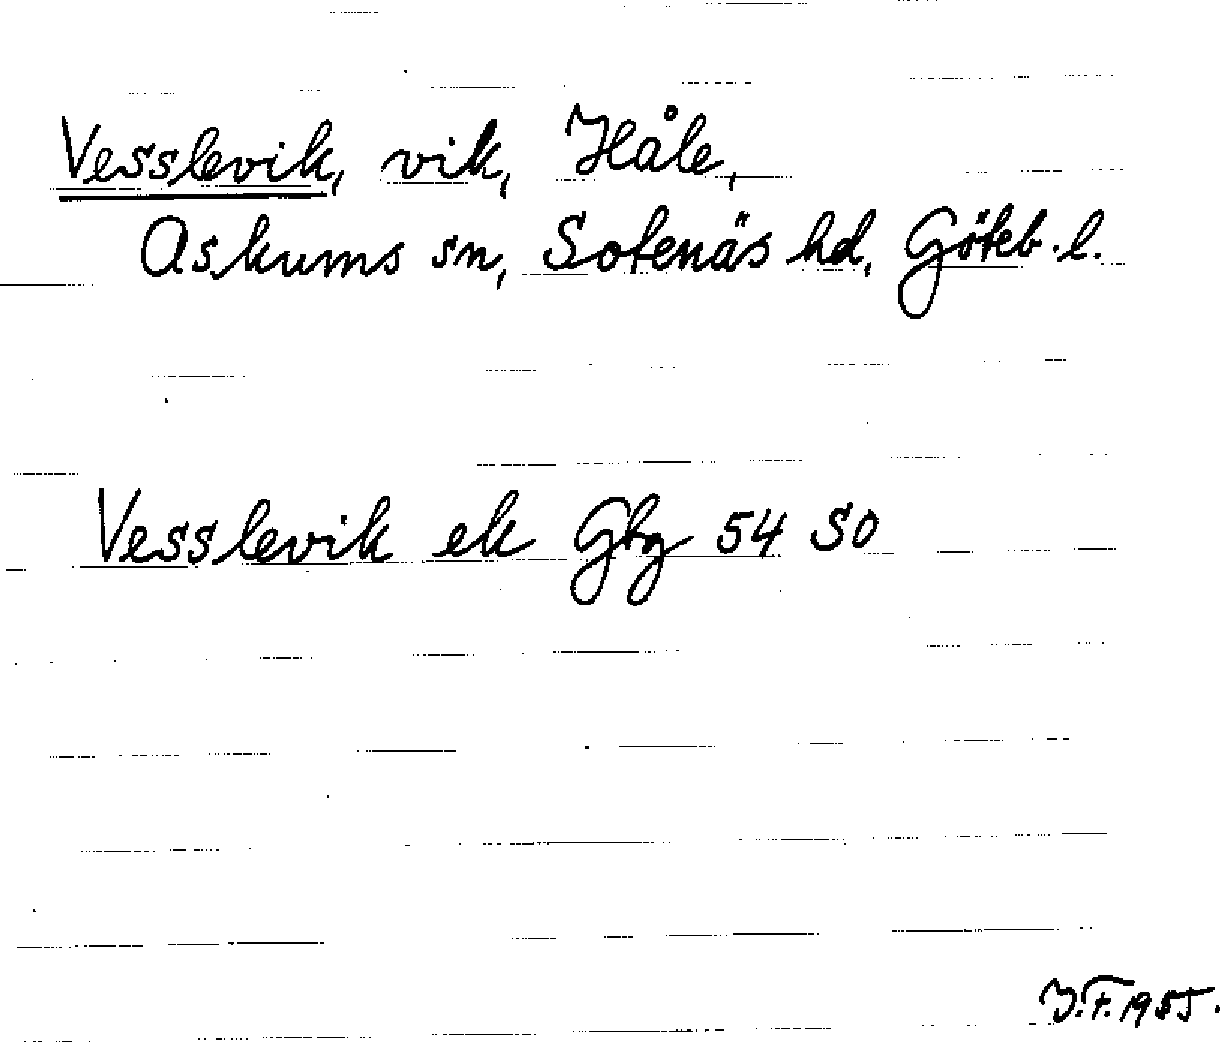 Vesslevik, vik, Håle,
Askums sn, Sotenäs hd, Göteb. l.
Vesslevik ek Gbg 54 SO
J.F. 1955.